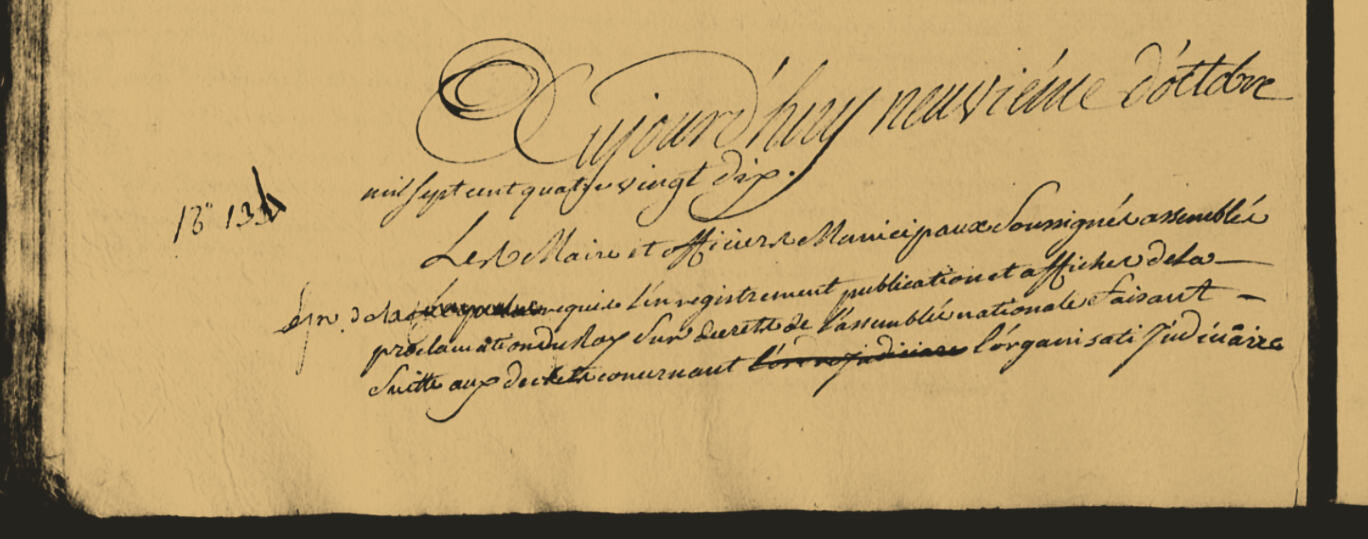 Aujourd'huy neuviéme d'octobre
mil sept cent quatre vingt dix.
Les Maire et officiers Municipaux Soussignés assemblés
requis l'enregistrement publication et affiches de la
proclamation du Roy Sur decrets de l'assemblée nationale faisant
Suitte aux decrets concernant l'ordre judiciaire l'organisati judiciaire